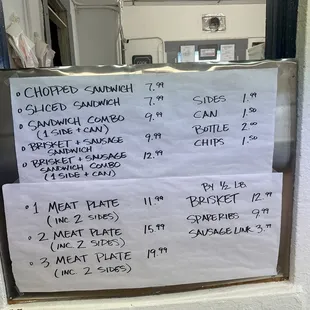 CHOPPED SANDWICH 7.99
SLICED SANDWICH 7.99
SANDWICH COMBO 9.99
(1 SIDE + CAN)
BRISKET + SAUSAGE 9.99
SANDWICH
BRISKET + SAUSAGE 12.99
SANDWICH COMBO
(1 SIDE + CAN)
SIDES 1.99
CAN 1.50
BOTTLE 2.00
CHIPS 1.50
1 MEAT PLATE 11.99
(INC 2 SIDES)
2 MEAT PLATE 15.99
(INC 2 SIDES)
3 MEAT PLATE 19.99
(INC 2 SIDES)
BY ½ LB
BRISKET 12.99
SPARERIBS 9.99
SAUSAGE LINK 3.99